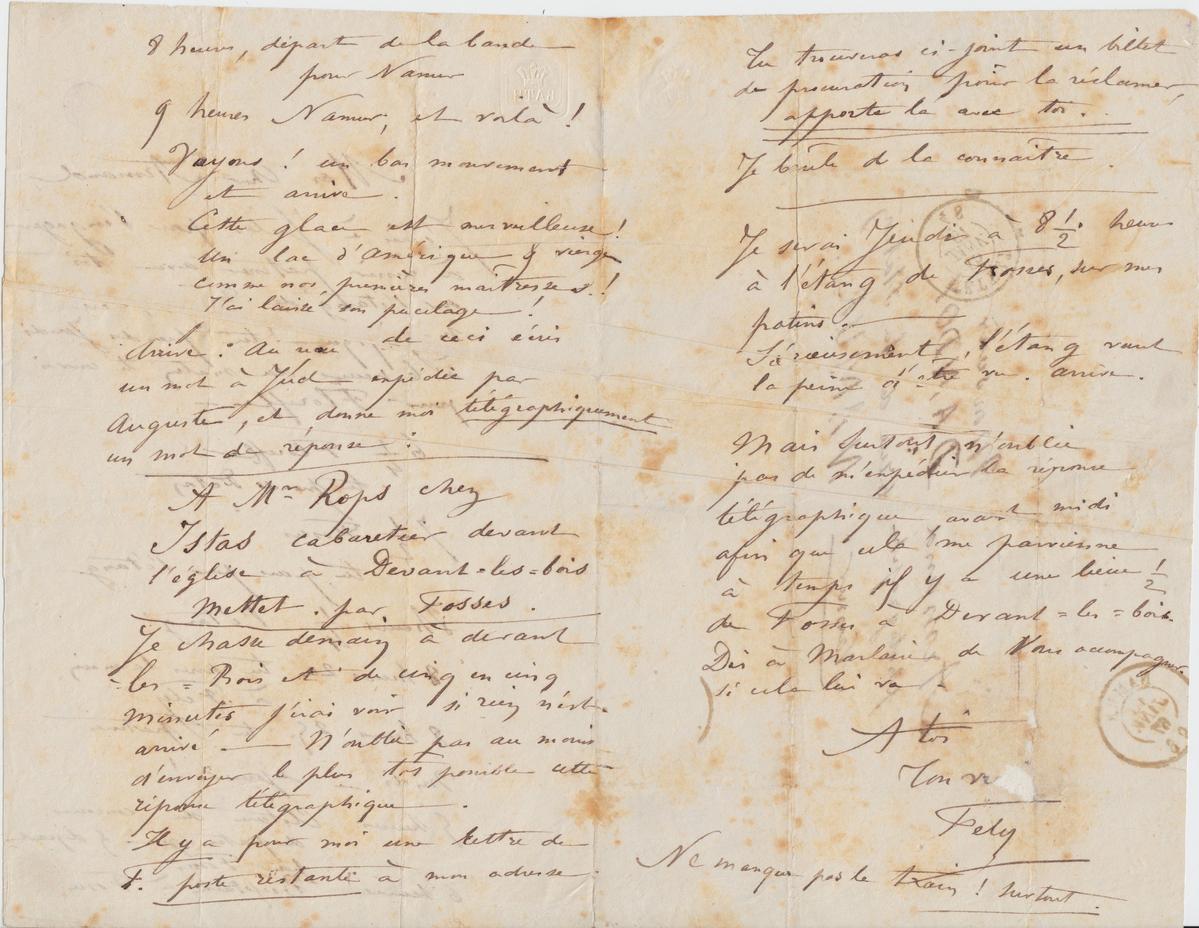 8 heures, départ de la bande
pour Namur
9 heures Namur, et voilà !
Voyons ! un bon mouvement
et arrive.
Cette glace est merveilleuse !
un lac d'Amérique & vierge
comme nos premières maîtresses !
J'ai laissé son pucelage !
Arrive ! Au reçu de ceci écris
un mot à Jud expédié par
Auguste, et donne moi télégraphiquement
un mot de réponse :
A Mr Rops chez
Istas cabaretier devant
l'église à Devant=les=bois
Mettet . par Fosses .
Je chasse demain à devant
=les=Bois et de cinq en cinq
minutes j'irai voir si rien n'est
arrivé — N'oublie pas au moins
d'envoyer le plus tôt possible cette
réponse télégraphique .
Il y a pour moi une lettre de
F. poste restante à mon adresse
Tu trouveras ci-joint un billet
de procuration pour la réclamer,
apporte la avec toi .
Je brûle de la connaître .
Je serai Jeudi à 8 1/2 heures
à l'étang de Fosses, sur mes
patins .
Sérieusement, l'étang vaut
la peine d'être vu . arrive .
Mais surtout n'oublie
pas de m'expédier la réponse
télégraphique avant midi
afin que cela me parvienne
à temps il y a une lieue 1/2
de Fosses à Devant=les=bois.
Dis à Marlaire de Vous accompagner
si cela lui va -
A toi
Ton
Fély
Ne manque pas le train ! surtout .
NAMUR